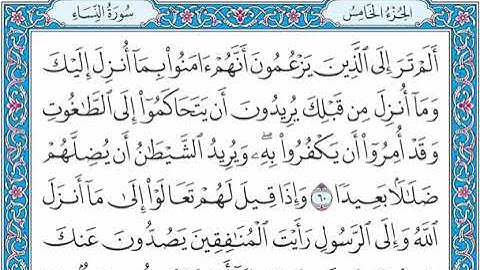 سُورَةُ النِّسَاءِ الجُزْءُ الخَامِسُ
أَلَمْ تَرَ إِلَى ٱلَّذِينَ يَزْعُمُونَ أَنَّهُمْ ءَامَنُوا۟ بِمَآ أُنزِلَ إِلَيْكَ
وَمَآ أُنزِلَ مِن قَبْلِكَ يُرِيدُونَ أَن يَتَحَاكَمُوٓا۟ إِلَى ٱلطَّٰغُوتِ
وَقَدْ أُمِرُوٓا۟ أَن يَكْفُرُوا۟ بِهِۦۖ وَيُرِيدُ ٱلشَّيْطَٰنُ أَن يُضِلَّهُمْ
ضَلَٰلًۢا بَعِيدًا ٦٠ وَإِذَا قِيلَ لَهُمْ تَعَالَوْا۟ إِلَىٰ مَآ أَنزَلَ
ٱللَّهُ وَإِلَى ٱلرَّسُولِ رَأَيْتَ ٱلْمُنَٰفِقِينَ يَصُدُّونَ عَنكَ